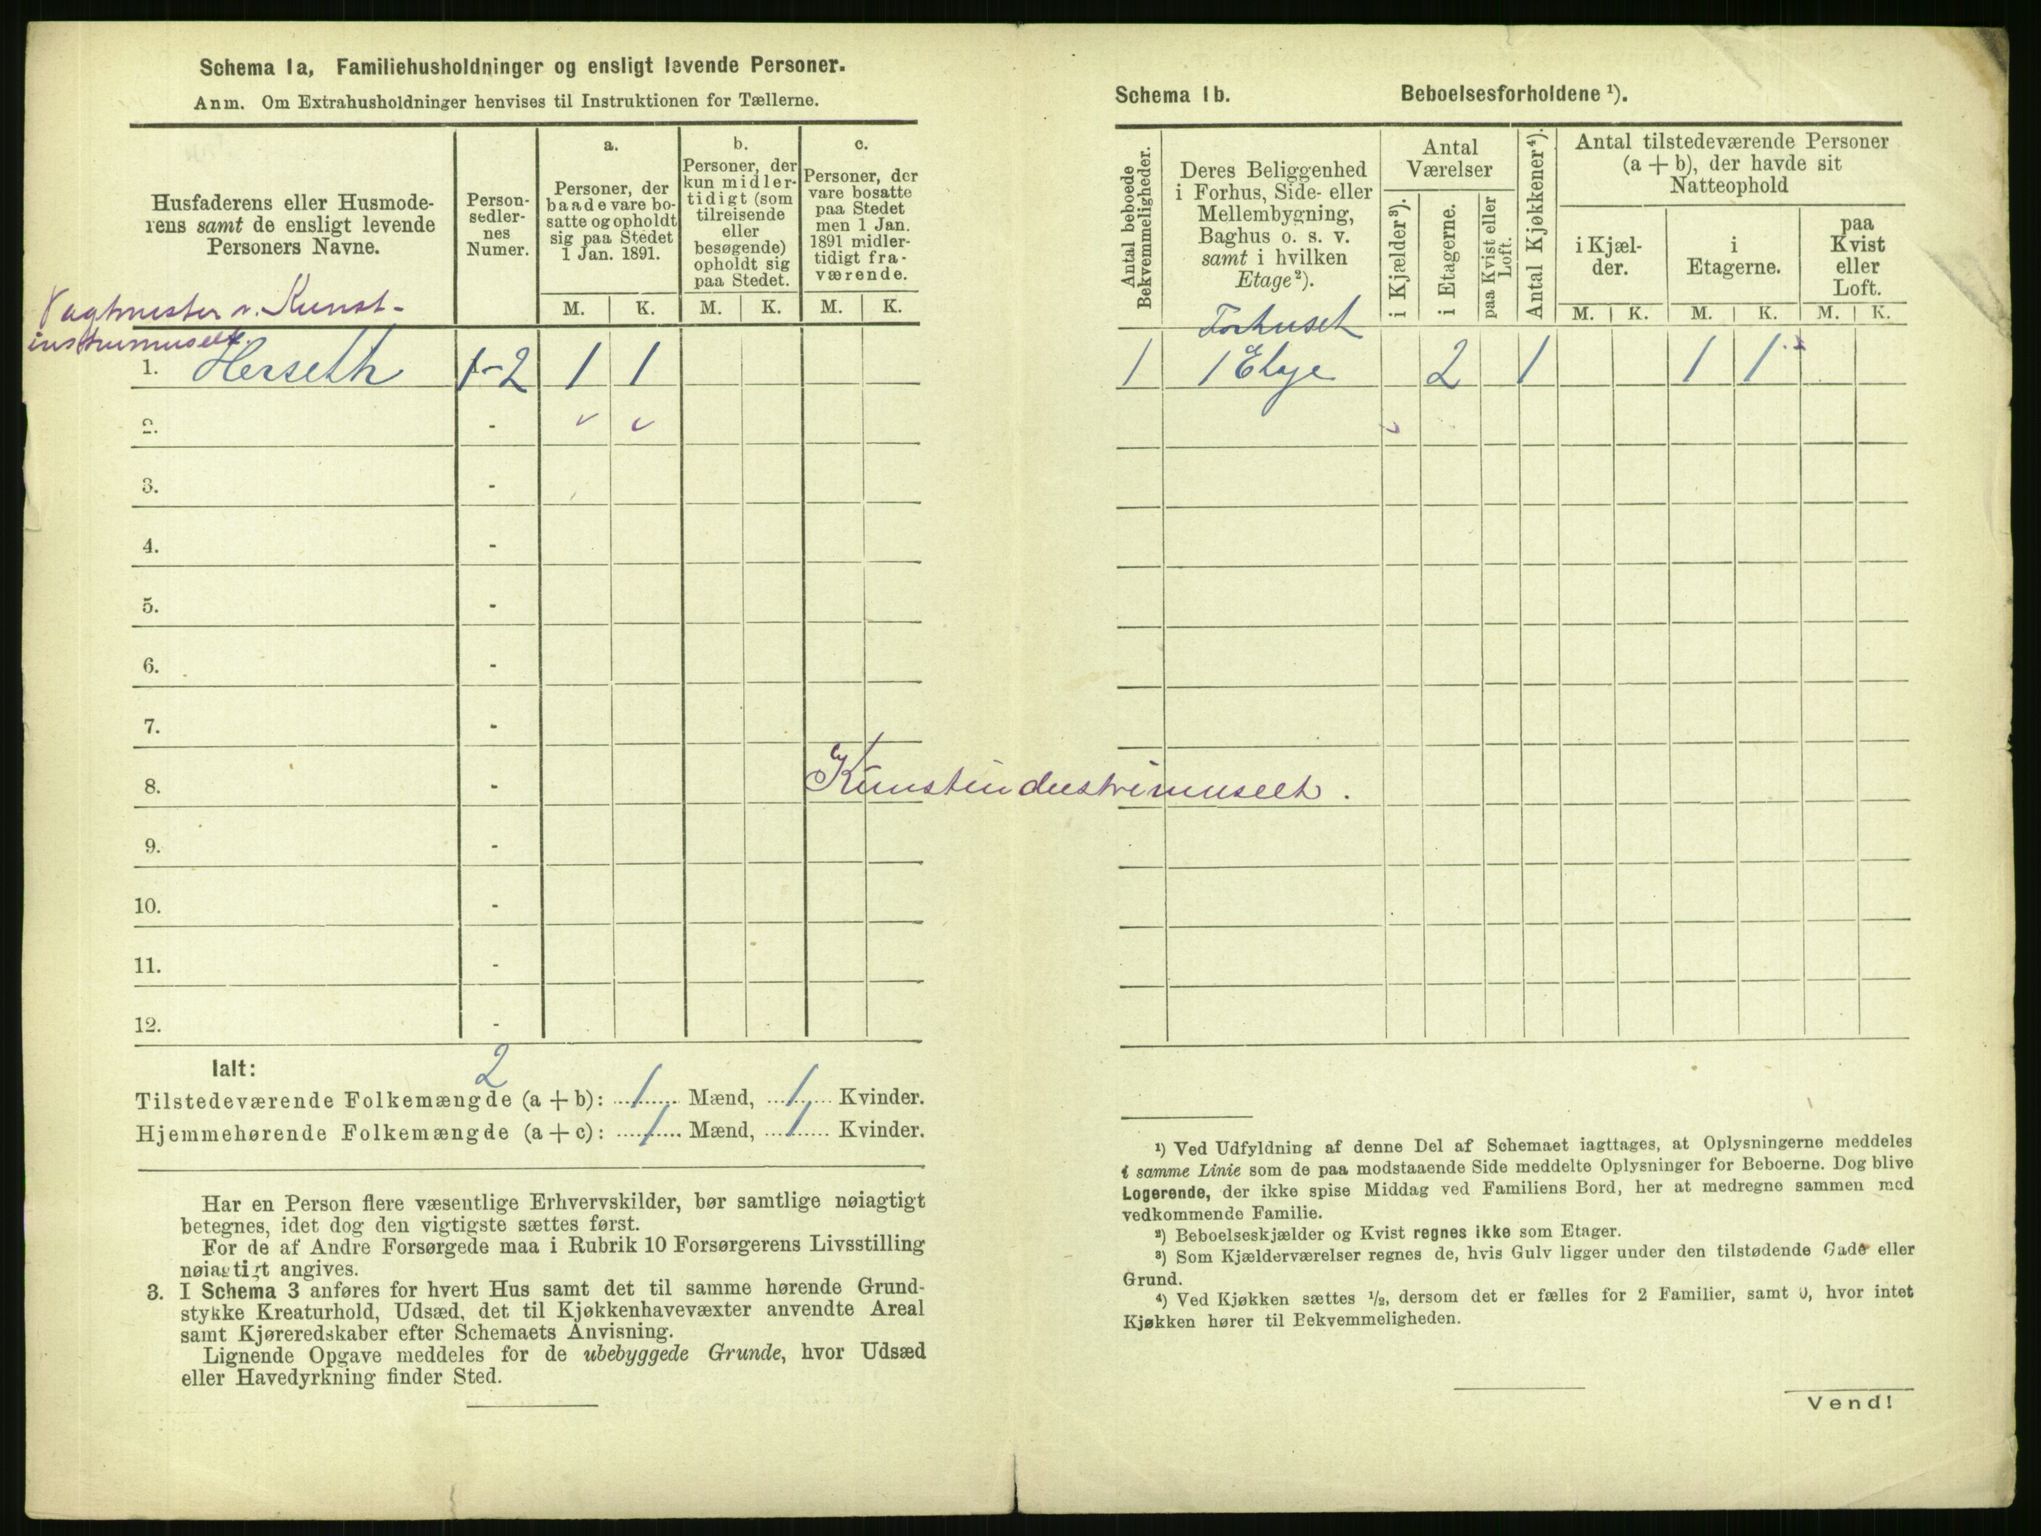 Schema 1a, Familiehusholdninger og ensligt levende Personer.
Anm. Om Extrahusholdninger henvises til Instruktionen for Tællerne.
Husfaderens eller Husmode-
rens samt de ensligt levende
Personers Navne.
Person-
sedler-
nes
Numer.
a.
Personer, der
baade vare bo-
satte og opholdt
sig paa Stedet
1 Jan. 1891.
b.
Personer, der
kun midler-
tidigt (som
tilreisende
eller
besøgende)
opholdt sig
paa Stedet.
c.
Personer, der
vare bosatte
paa Stedet
men 1 Jan.
1891 midler-
tidigt fra-
værende.
M. K. M. K. M. K.
Vagtmester v. Kunst-
industrimuseet.
1. Herseth 1-2 1 1
2. -
3. -
4. -
5. -
6. -
7. -
8. - Kunstindustrimuseet.
9. -
10. -
11. -
12. -
Ialt:
2
Tilstedeværende Folkemængde (a + b): 1 Mænd, 1 Kvinder.
Hjemmehørende Folkemængde (a + c): 1 Mænd, 1 Kvinder.
Har en Person flere væsentlige Erhvervskilder, bør samtlige nøiagtigt
betegnes, idet dog den vigtigste sættes først.
For de af Andre Forsørgede maa i Rubrik 10 Forsørgerens Livsstilling
nøiagtigt angives.
3. I Schema 3 anføres for hvert Hus samt det til samme hørende Grund-
stykke Kreaturhold, Udsæd, det til Kjøkkenhavevæxter anvendte Areal
samt Kjøreredskaber efter Schemaets Anvisning.
Lignende Opgave meddeles for de ubebyggede Grunde, hvor Udsæd
eller Havedyrkning finder Sted.
Schema 1b. Beboelsesforholdene ¹).
Antal beboede
Bekvemmeligheder.
Deres Beliggenhed
i Forhus, Side- eller
Mellembygning,
Baghus o. s. v.
samt i hvilken
Etage ²).
Antal
Værelser
i Kjælder ³).
i Etagerne.
paa Kvist eller
Loft.
Antal Kjøkkener ⁴).
Antal tilstedeværende Personer
(a + b), der havde sit
Natteophold
i Kjæl-
der.
i
Etagerne.
paa
Kvist
eller
Loft.
M. K. M. K. M. K.
Forhuset
1 1 Etage 2 1 1 1
¹) Ved Udfyldning af denne Del af Schemaet iagttages, at Oplysningerne meddeles
i samme Linie som de paa modstaaende Side meddelte Oplysninger for Beboerne. Dog blive
Logerende, der ikke spise Middag ved Familiens Bord, her at medregne sammen med
vedkommende Familie.
²) Beboelseskjælder og Kvist regnes ikke som Etager.
³) Som Kjælderværelser regnes de, hvis Gulv ligger under den tilstødende Gade eller
Grund.
⁴) Ved Kjøkken sættes ¹/₂, dersom det er fælles for 2 Familier, samt 0, hvor intet
Kjøkken hører til Bekvemmeligheden.
Vend!